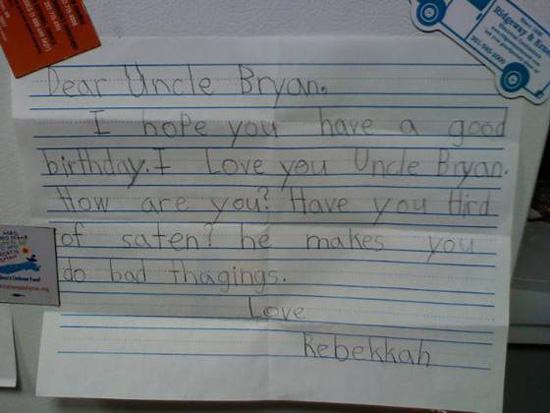 Ridgeway & Ern
Dear Uncle Bryan.
I hope you have a good
birthday. I Love you Uncle Bryan.
How are you? Have you Hird
of saten? he makes you
do bad thagings.
Love
Rebekkah